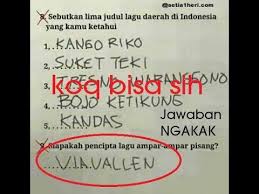 @setia1heri.com
8. Sebutkan lima judul lagu daerah di Indonesia
yang kamu ketahui
1. KANGO RIKO
2. SUKET TEKI
3. TRESNO
4. BOJO KETIKUNG
5. KANDAS
koq bisa sih
Jawaban
NGAKAK
9. Siapakah pencipta lagu ampar-ampar pisang?
VIA VALLEN